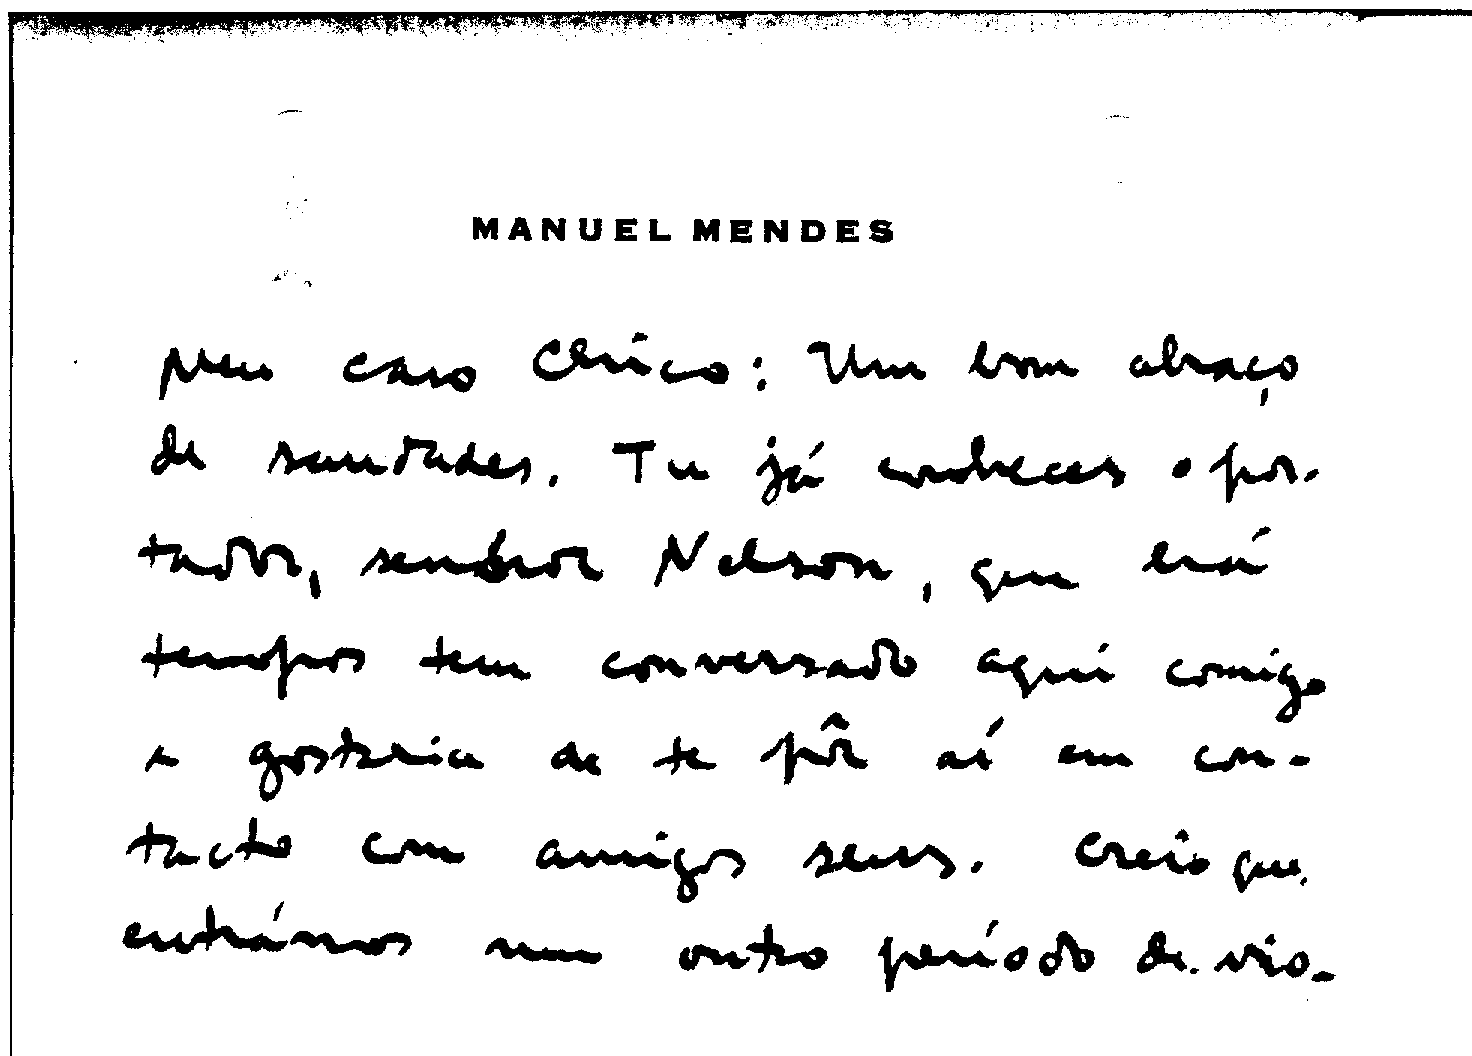 MANUEL MENDES
Meu caro Chico: Um bom abraço
de saudades. Tu já conheces o por-
tador, senhor Nelson, que há
tempos tem conversado aqui comigo
e gostaria de te pôr aí em con-
tacto com amigos seus. Creio que
entrámos num outro período de vio-